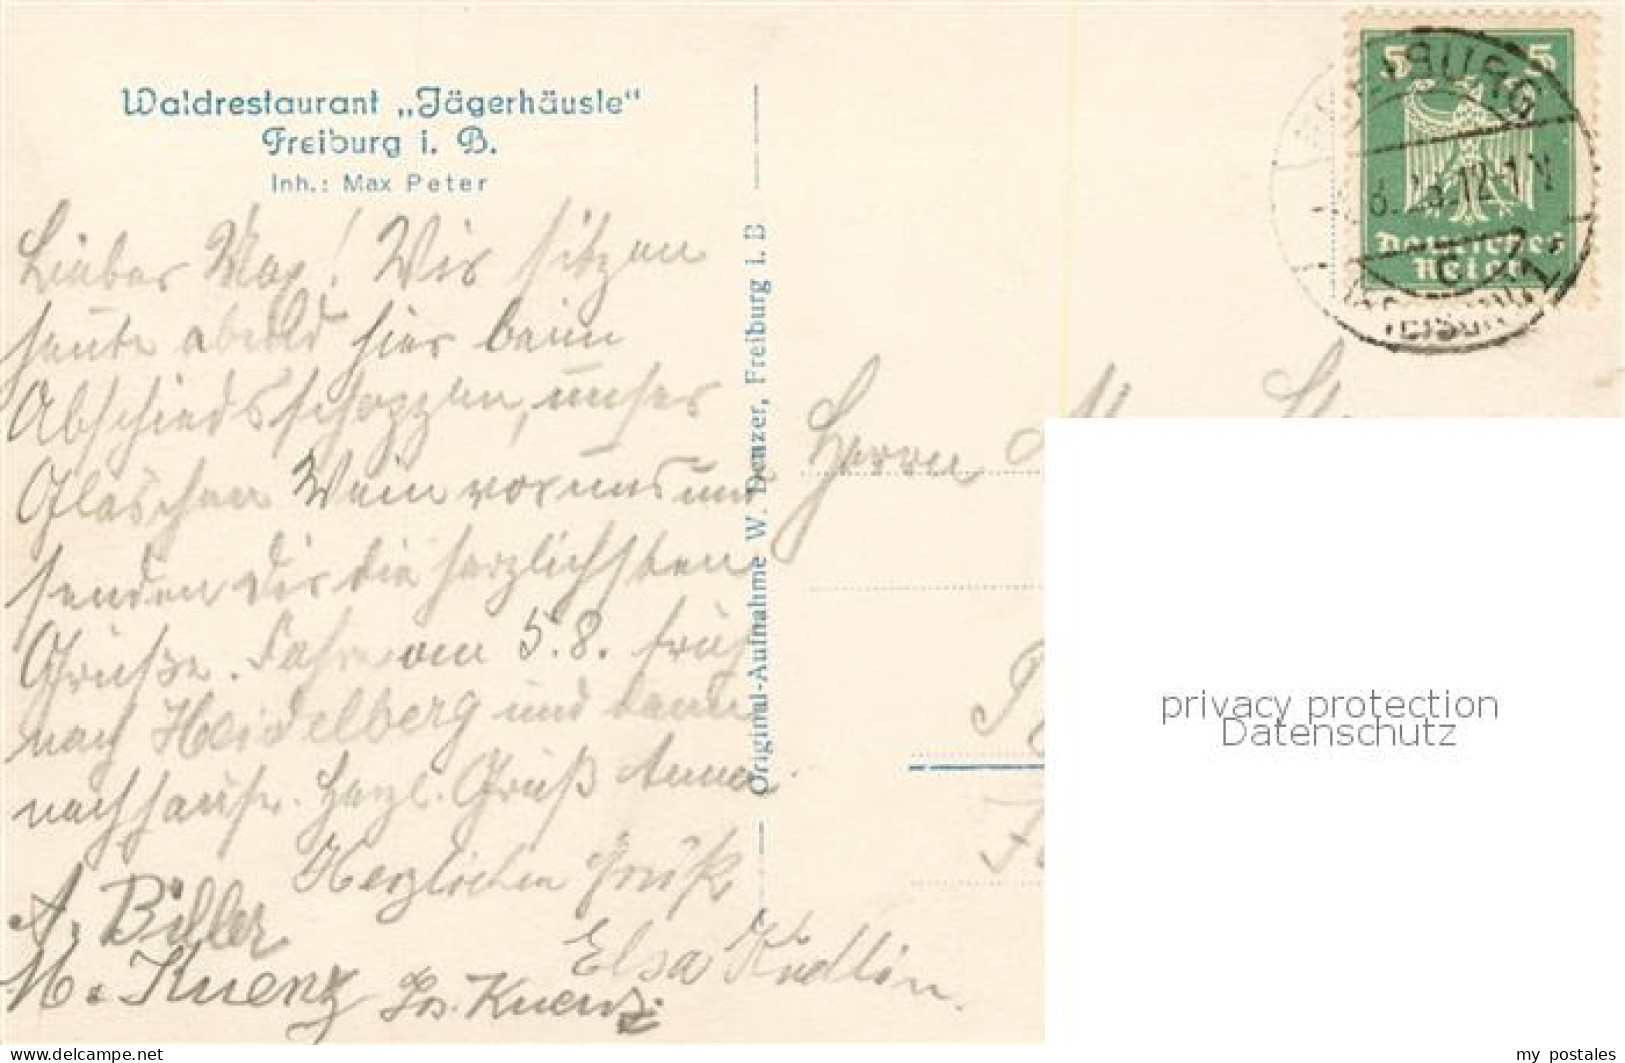 Waldrestaurant „Jägerhäusle“
Freiburg i. B.
Inh.: Max Peter
Lieber Max! Wir sitzen
heute abend hier beim
Abschiedsschoppen, unser
Gläschen Wein vor uns und
senden Dir die herzlichsten
Grüße. Fahre am 5.8. früh
nach Heidelberg und dann
nachhause. Herzl. Gruß Anna.
Herzlichen Gruß
A. Biller
Elsa
M. Kuenz Jos. Kuenz
Original-Aufnahme W. Denzer, Freiburg i. B
5 5
Deutsches
Reich
12-1 N
Herrn
privacy protection
Datenschutz
https://www.delcampe.net
my_postales